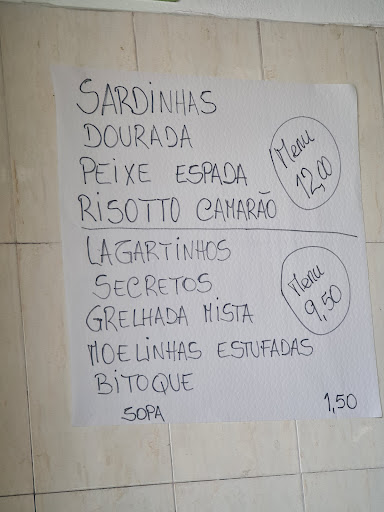 SARDINHAS
DOURADA
PEIXE ESPADA
RISOTTO CAMARÃO
Menu
12,00
LAGARTINHOS
SECRETOS
GRELHADA MISTA
MOELINHAS ESTUFADAS
BITOQUE
Menu
9,50
SOPA 1,50